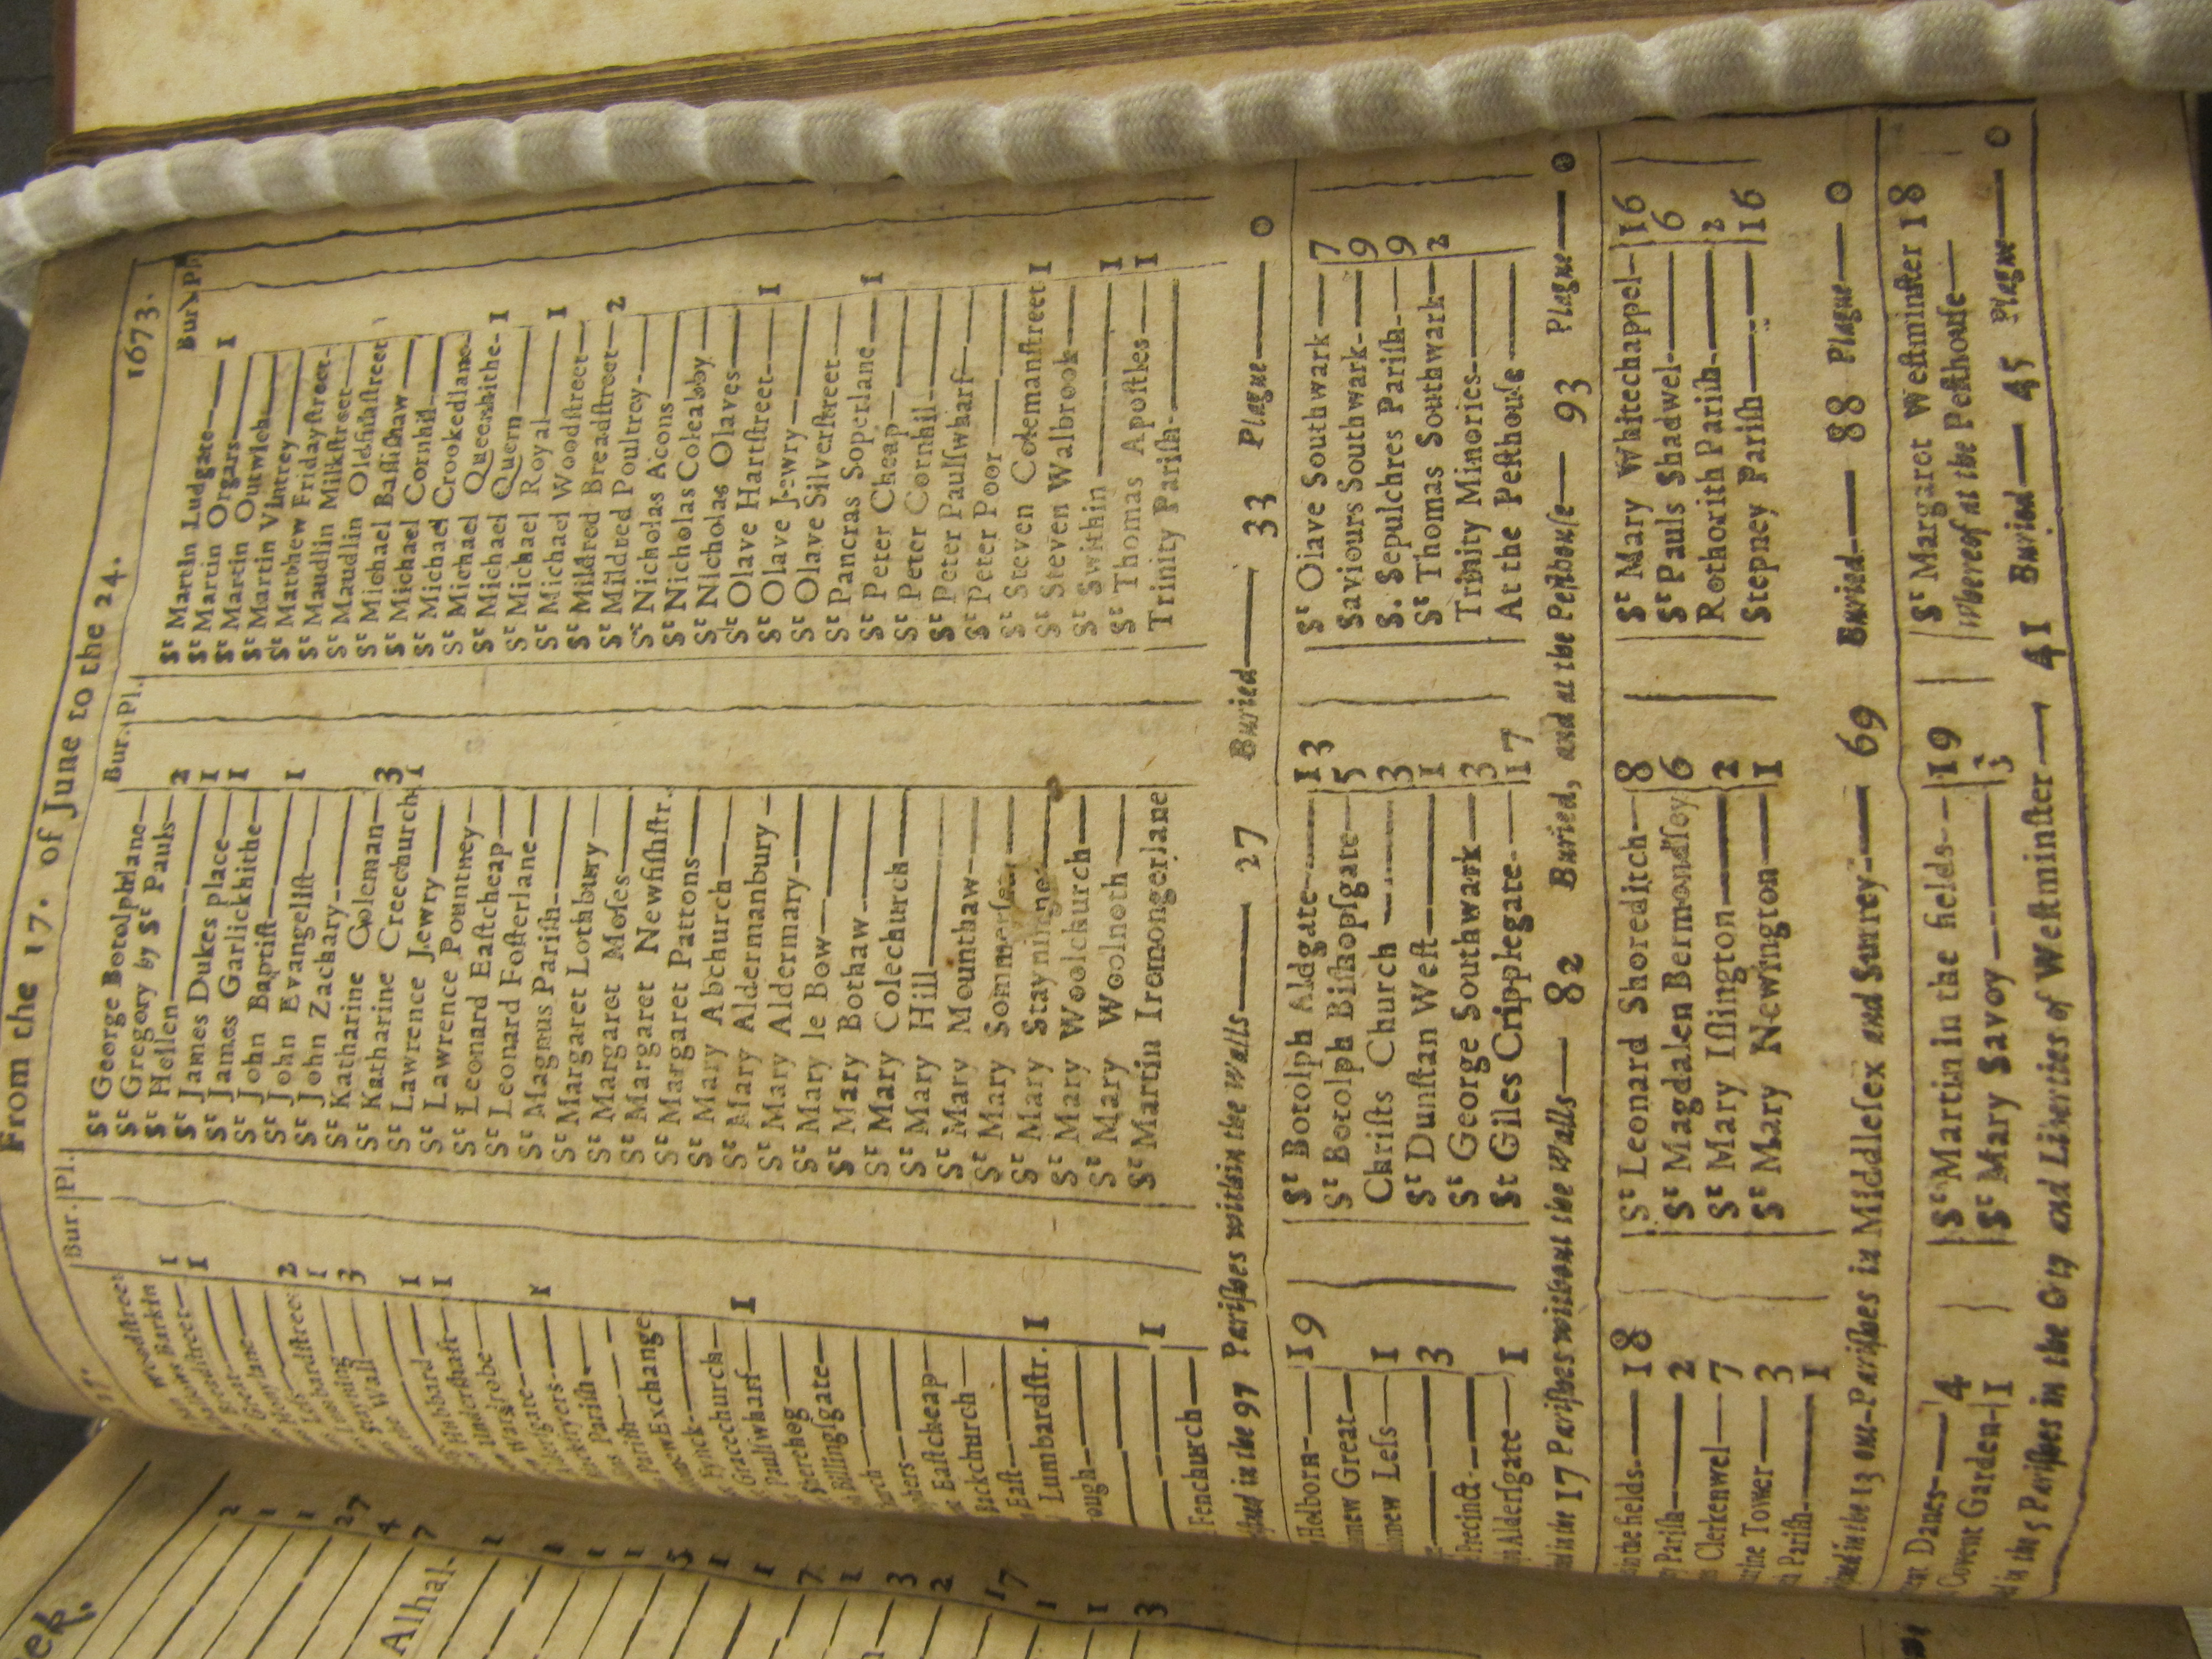 From the 17. of June to the 24. 1673.
Bur. Pl.
Woodstreet
Barkin 1
1
Great
Honylane
2
Lumbardstreet 1
Stayning 3
Wall
Hubbard 1
Undershaft 1
Wardrobe
Aldersgate
Blackfryers 1
Parish
Parish
Exchange
Fynck
Gracechurch
Paulswharf 1
Sherehog
Billingsgate
Eastcheap
Backchurch
East
Lumbardstr. 1
ough
1
Fenchurch
Bur. Pl.
St George Botolphlane
St Gregory by St Pauls 2
St Hellen 1
St James Dukes place 1
St James Garlickhithe
St John Baptist 1
St John Evangelist
St John Zachary
St Katharine Coleman 3
St Katharine Creechurch 1
St Lawrence Jewry
St Lawrence Pountney
St Leonard Eastcheap
St Leonard Fosterlane
St Magnus Parish
St Margaret Lothbury
St Margaret Moses
St Margaret Newfishstr.
St Margaret Pattons
St Mary Abchurch
St Mary Aldermanbury
St Mary Aldermary
St Mary le Bow
St Mary Bothaw
St Mary Colechurch
St Mary Hill
St Mary Mounthaw
St Mary Sommerset
St Mary Stayning
St Mary Woolchurch
St Mary Woolnoth
St Martin Iremongerlane
Bur. Pl.
St Martin Ludgate 1
St Martin Orgars
St Martin Outwich
St Martin Vintrey
St Matthew Fridaystreet
St Maudlin Milkstreet
St Maudlin Oldfishstreet
St Michael Bassishaw
St Michael Cornhil
St Michael Crookedlane
St Michael Queenhithe 1
St Michael Quern
St Michael Royal 1
St Michael Woodstreet
St Mildred Breadstreet 2
St Mildred Poultrey
St Nicholas Acons
St Nicholas Coleabby
St Nicholas Olaves
St Olave Hartstreet 1
St Olave Jewry
St Olave Silverstreet
St Pancras Soperlane
St Peter Cheap 1
St Peter Cornhil
St Peter Paulswharf
St Peter Poor
St Steven Colemanstreet 1
St Steven Walbrook
St Swithin 1
St Thomas Apostles 1
Trinity Parish
in the 97 Parishes within the Walls 27 Buried 33 Plague 0
Holborn 19
mew Great
mew Less 1
3
Precinct
Aldersgate 1
St Botolph Aldgate 13
St Botolph Bishopsgate 5
Christs Church 3
St Dunstan West 1
St George Southwark 3
St Giles Cripplegate 17
St Olave Southwark 7
Saviours Southwark 9
S. Sepulchres Parish 9
St Thomas Southwark 2
Trinity Minories
At the Pesthouse
in the 17 Parishes without the Walls 82 Buried, and at the Pesthouse 93 Plague 0
in the fields 18
Parish 2
Clerkenwel 7
Tower 3
Parish 1
St Leonard Shoreditch 8
St Magdalen Bermondsey 6
St Mary Islington 2
St Mary Newington 1
St Mary Whitechappel 16
St Pauls Shadwel 6
Rothorith Parish 2
Stepney Parish 16
in the 13 out-Parishes in Middlesex and Surrey 69 Buried 88 Plague 0
Danes 4
Covent Garden 1
St Martin in the fields 19
St Mary Savoy 3
St Margaret Westminster 18
Whereof at the Pesthouse
in the 5 Parishes in the City and Liberties of Westminster 41 Buried 45 Plague 0
2
1
1
27
4
7
Alhal-
1
1
1
1
5
1
1
7
1
3
2
17
1
1
3